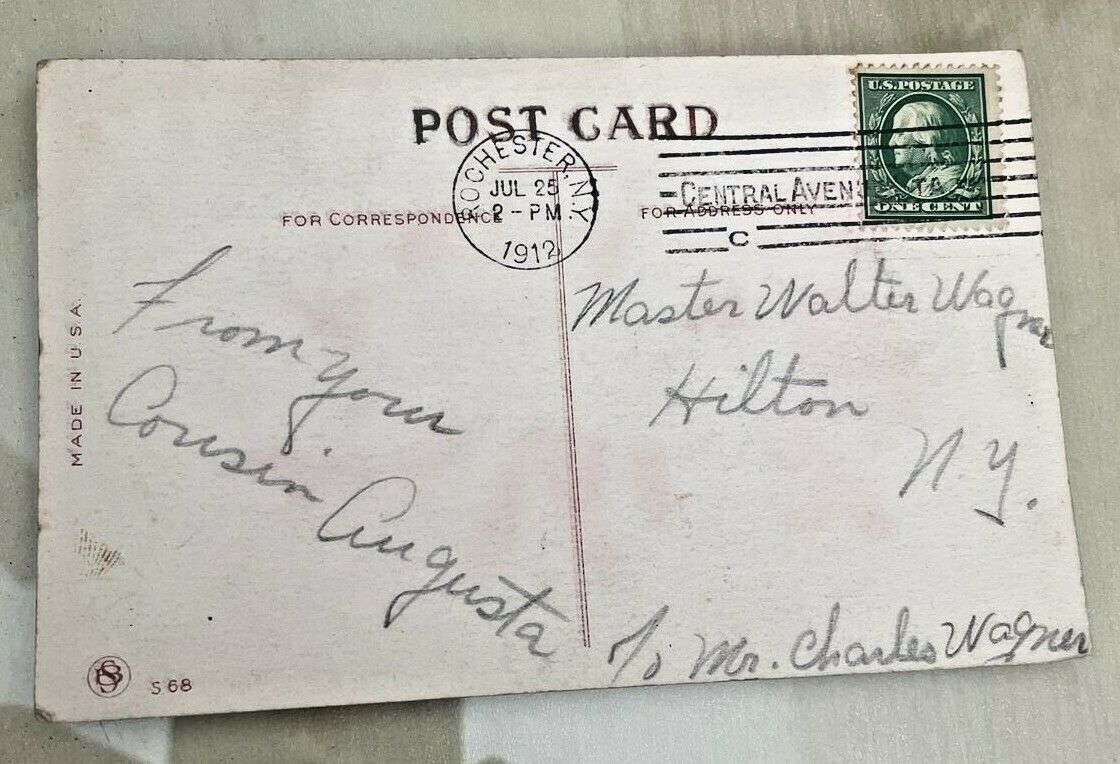 POST CARD
ROCHESTER, N.Y.
JUL 25
2 - PM
1912
U.S. POSTAGE
ONE CENT
CENTRAL AVEN
TA
C
FOR CORRESPONDENCE
FOR ADDRESS ONLY
From your
Cousin
Augusta
Master Walter Wagner
Hilton
N.Y.
c/o Mr. Charles Wagner
MADE IN U.S.A.
S 68